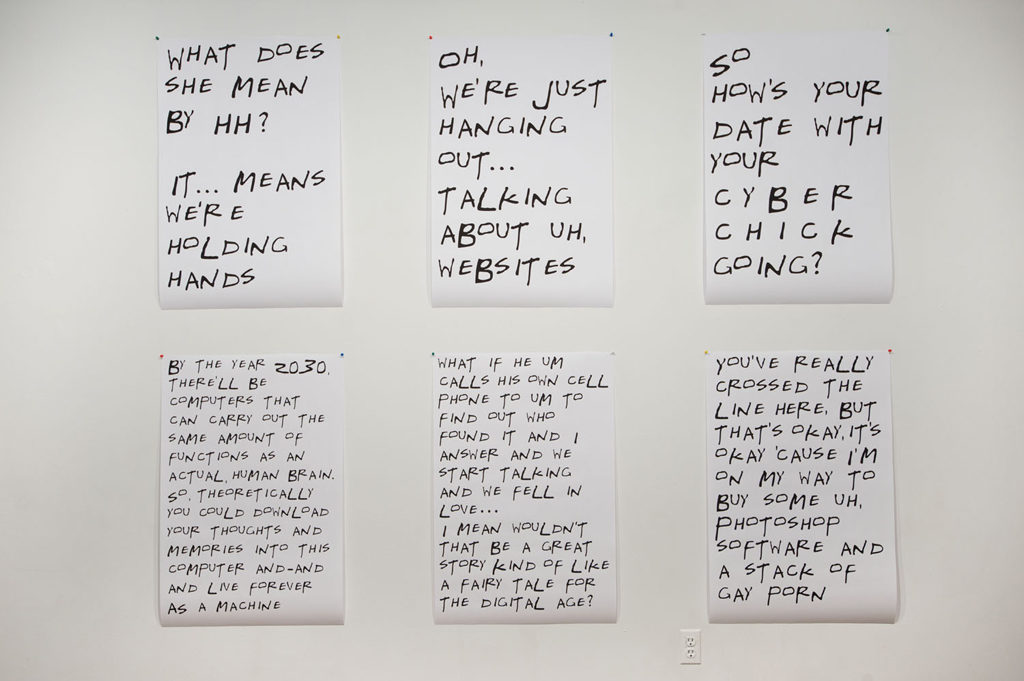 WHAT DOES
SHE MEAN
BY HH?
IT... MEANS
WE'RE
HOLDING
HANDS
OH,
WE'RE JUST
HANGING
OUT...
TALKING
ABOUT UH,
WEBSITES
SO
HOW'S YOUR
DATE WITH
YOUR
CYBER
CHICK
GOING?
BY THE YEAR 2030,
THERE'LL BE
COMPUTERS THAT
CAN CARRY OUT THE
SAME AMOUNT OF
FUNCTIONS AS AN
ACTUAL, HUMAN BRAIN.
SO, THEORETICALLY
YOU COULD DOWNLOAD
YOUR THOUGHTS AND
MEMORIES INTO THIS
COMPUTER AND-AND
AND LIVE FOREVER
AS A MACHINE
WHAT IF HE UM
CALLS HIS OWN CELL
PHONE TO UM TO
FIND OUT WHO
FOUND IT AND I
ANSWER AND WE
START TALKING
AND WE FELL IN
LOVE...
I MEAN WOULDN'T
THAT BE A GREAT
STORY KIND OF LIKE
A FAIRY TALE FOR
THE DIGITAL AGE?
YOU'VE REALLY
CROSSED THE
LINE HERE, BUT
THAT'S OKAY, IT'S
OKAY 'CAUSE I'M
ON MY WAY TO
BUY SOME UH,
PHOTOSHOP
SOFTWARE AND
A STACK OF
GAY PORN